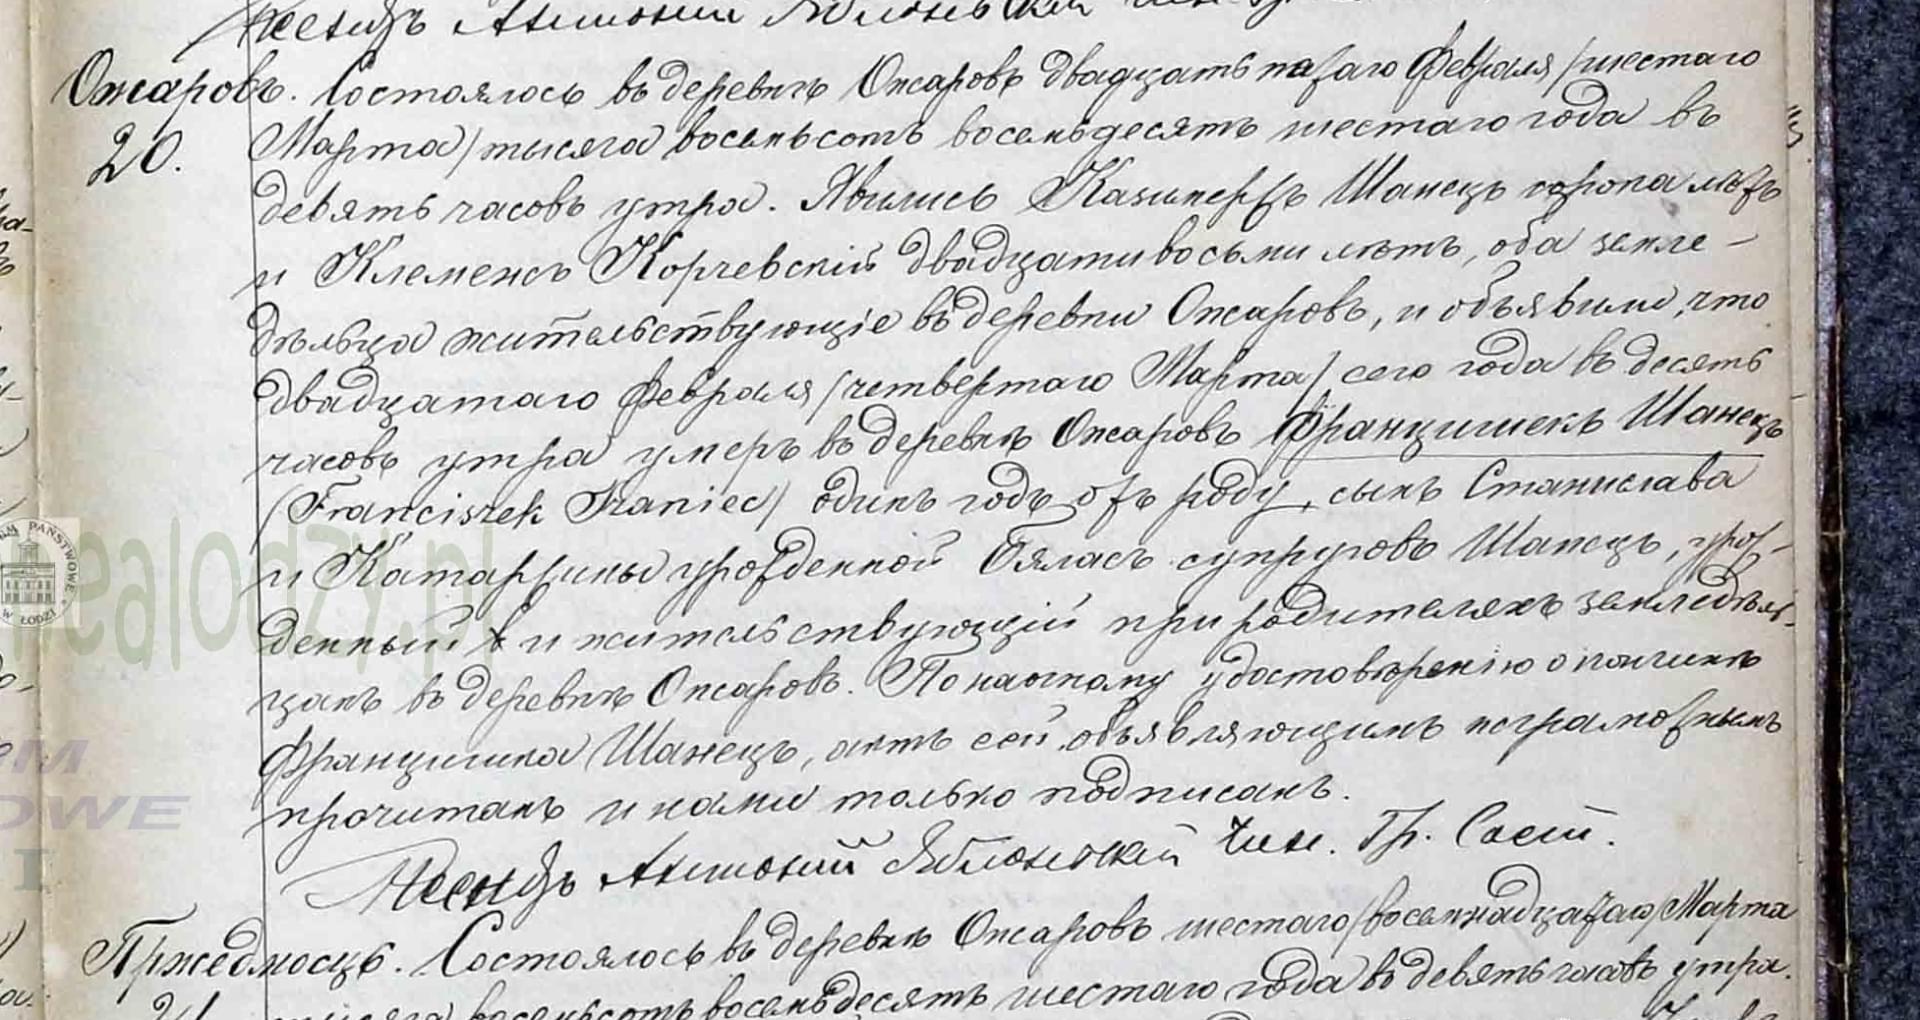 Ксендзъ Антоній Яблоновскій
Ожаровъ. Состоялось въ деревнѣ Ожаровѣ двадцать пятаго Февраля /шестаго
20. Марта/ тысяча восемьсотъ восемьдесятъ шестаго года въ
девять часовъ утра. Явились Казимержъ Шанецъ сорока лѣтъ
и Клеменсъ Корчевскій двадцати восьми лѣтъ, оба земле-
дѣльца жительствующіе въ деревни Ожаровъ, и объявили, что
двадцатаго Февраля /четвертаго Марта/ сего года въ десять
часовъ утра умеръ въ деревнѣ Ожаровъ Францишекъ Шанецъ
/Franciszek Szaniec/ одинъ годъ отъ роду, сынъ Станислава
и Катаржины урожденной Бяласъ супруговъ Шанецъ, урож-
денный и жительствующій при родителяхъ земледѣль-
цахъ въ деревнѣ Ожаровъ. По настному удостовѣренію о кончинѣ
Францишка Шанецъ, актъ сей объявляющимъ неграмотнымъ
прочитанъ и нами только подписанъ.
Ксендзъ Антоній Яблоновскій Чин. Гр. Сост.
Пржедмосцъ. Состоялось въ деревнѣ Ожаровъ шестаго /восемнадцатаго/ Марта
21. тысяча восемьсотъ восемьдесятъ шестаго года въ девять часовъ утра.
PAŃSTWOWE W ŁODZI
nealodzy.pl